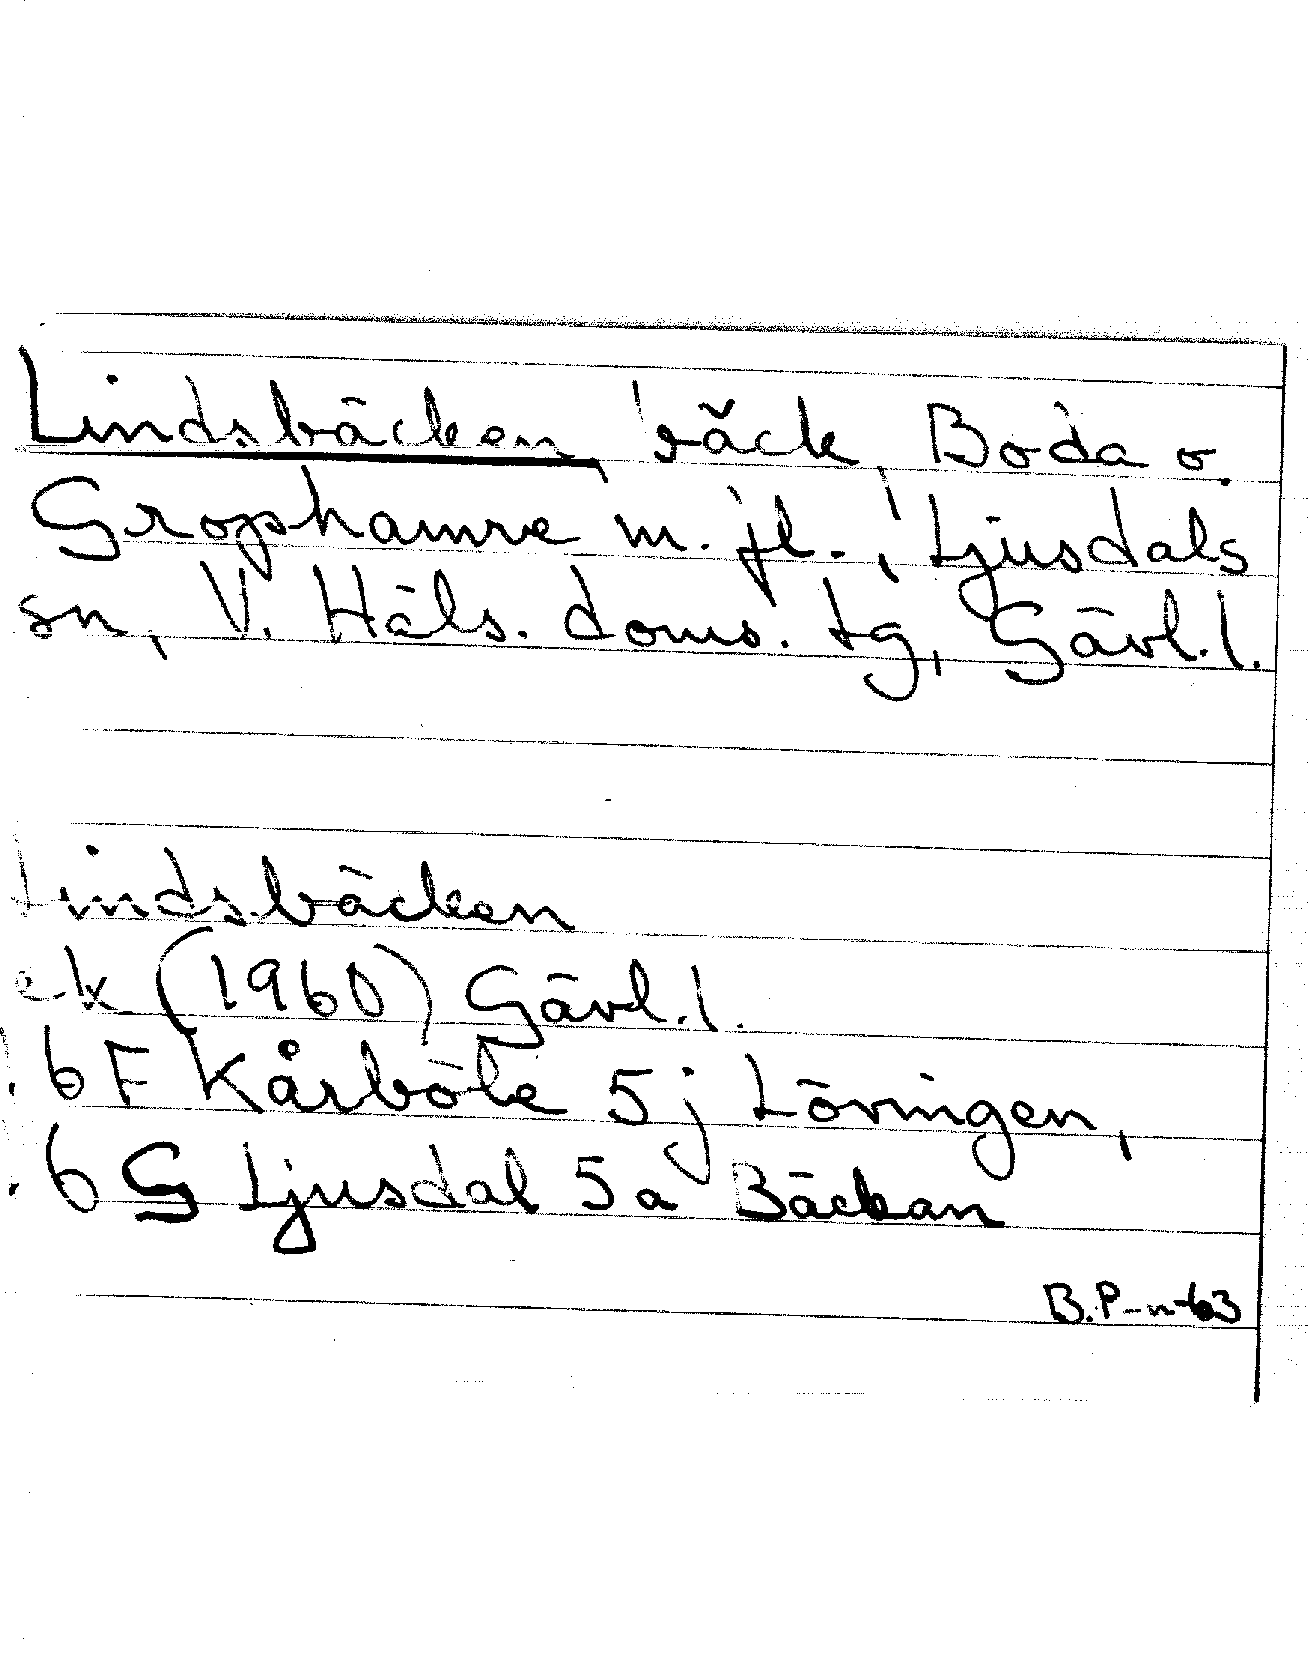 Lindsbäcken, bäck, Boda o.
Grophamre m. fl., Ljusdals
sn, V. Häls. doms. tg, Gävl. l.
Lindsbäcken
ek (1960) Gävl. l.
. 6 F Kårböle 5 j Löringen,
. 6 G Ljusdal 5 a Bäckan
B. P-n 63